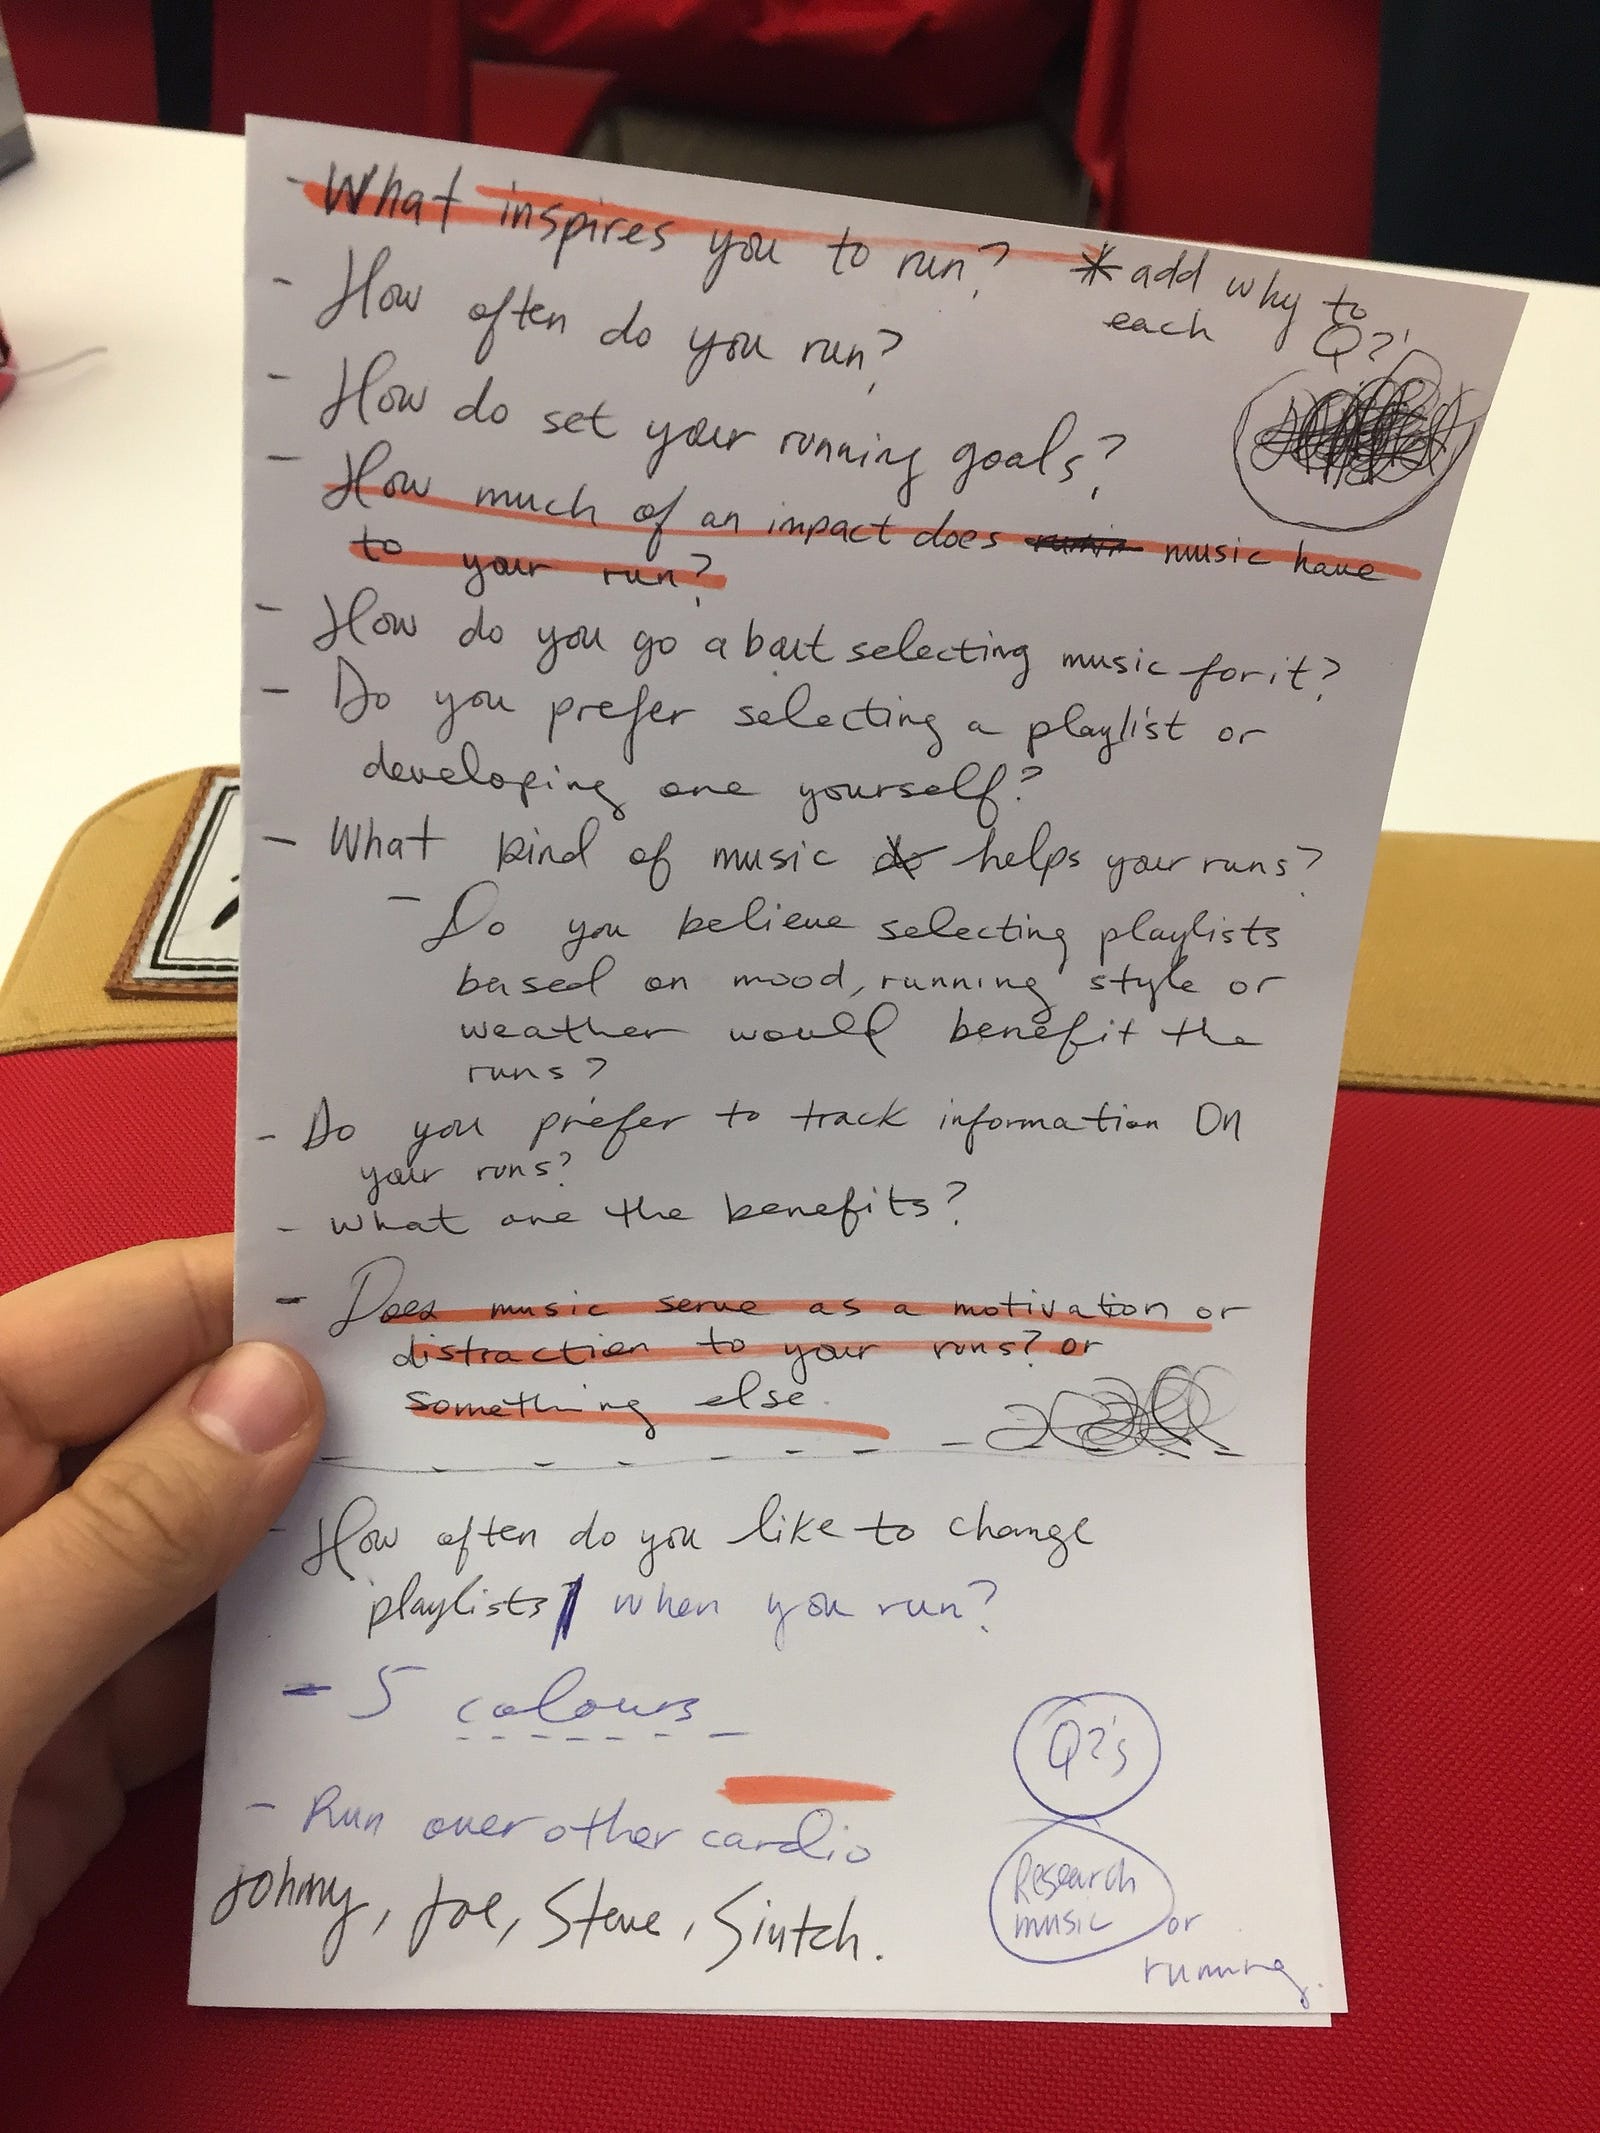 - What inspires you to run?
* add why to
each Q?'
- How often do you run?
- How do set your running goals?
- How much of an impact does music have
to your run?
- How do you go about selecting music for it?
- Do you prefer selecting a playlist or
developing one yourself?
- What kind of music do helps your runs?
- Do you believe selecting playlists
based on mood, running style or
weather would benefit the
runs?
- Do you prefer to track information on
your runs?
- What are the benefits?
- Does music serve as a motivation or
distraction to your runs? or
something else.
- How often do you like to change
playlists when you run?
- 5 colours
- Run over other cardio
Johnny, Joe, Steve, Sintch.
Q?'s
Research
music or
running.